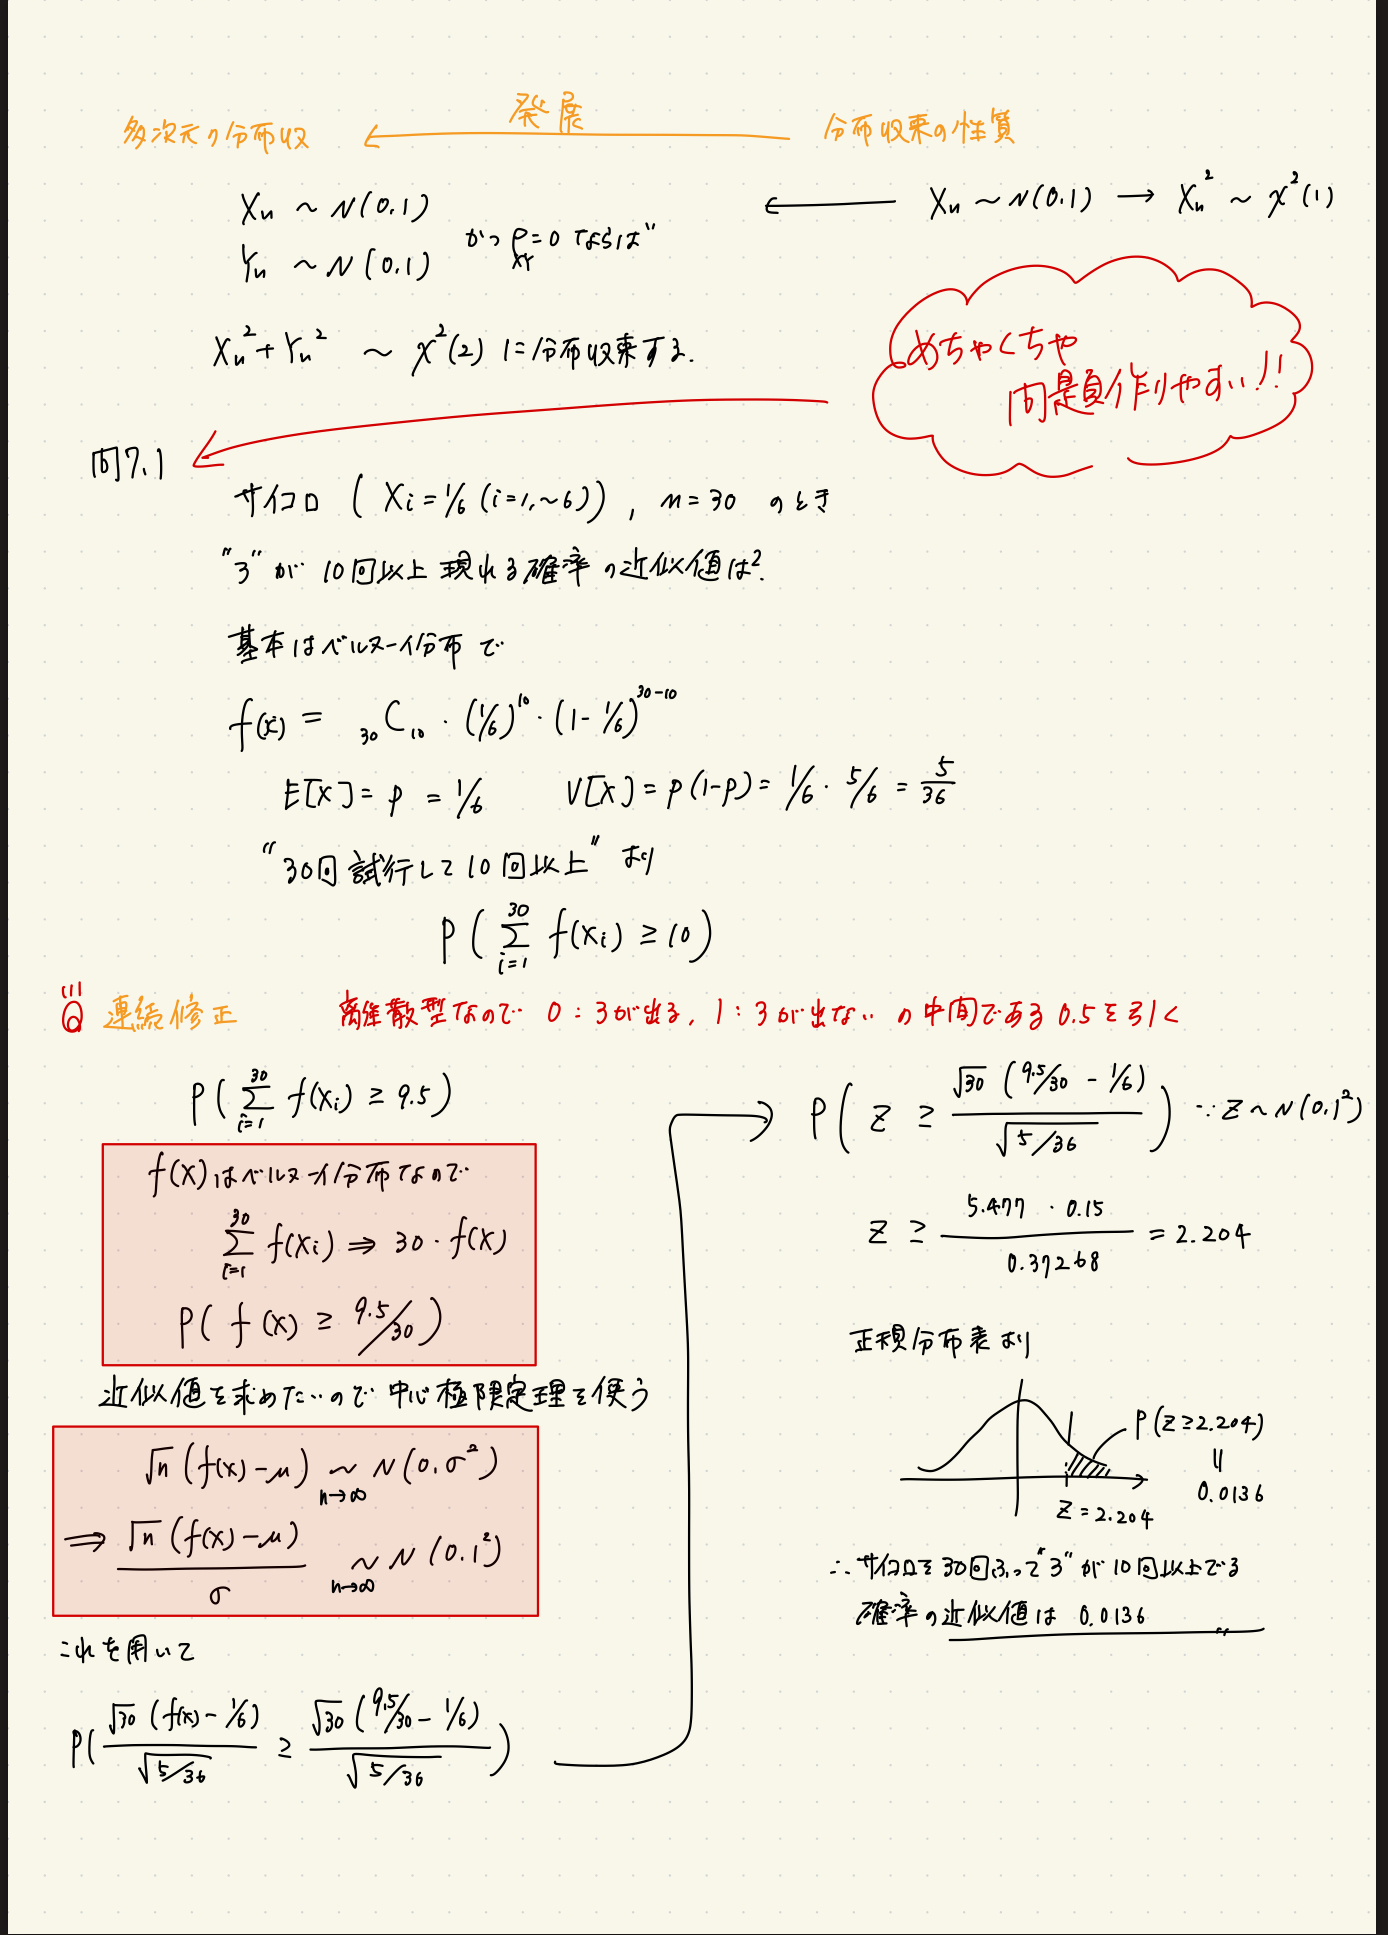 発展
多次元の分布収 ← 分布収束の性質
Xn ~ N(0.1) ← Xn ~ N(0.1) → Xn² ~ χ²(1)
Yn ~ N(0.1) かつ ρXY=0 ならば
Xn² + Yn² ~ χ²(2) に分布収束する.
めちゃくちゃ
問題作りやすい!!
問7.1
サイコロ ( Xi = 1/6 (i=1,~6)) , n=30 のとき
"3"が 10回以上 現れる確率の近似値は?
基本はベルヌーイ分布で
f(x) = 30C10 · (1/6)^10 · (1-1/6)^30-10
E[X] = p = 1/6 V[X] = p(1-p) = 1/6 · 5/6 = 5/36
"30回試行して10回以上" より
P( Σ_{i=1}^{30} f(Xi) ≥ 10)
連続修正 離散型なので 0:3が出る, 1:3が出ない の中間である 0.5を引く
P( Σ_{i=1}^{30} f(Xi) ≥ 9.5)
f(X)はベルヌーイ分布なので
Σ_{i=1}^{30} f(Xi) ⇒ 30·f(X)
P( f(X) ≥ 9.5/30 )
近似値を求めたいので 中心極限定理を使う
√n (f(X)-μ) ~_{n→∞} N(0.σ²)
⇒ √n (f(X)-μ) / σ ~_{n→∞} N(0.1²)
これを用いて
P( √30 (f(x)-1/6) / √5/36 ≥ √30 (9.5/30 - 1/6) / √5/36 )
P( Z ≥ √30 (9.5/30 - 1/6) / √5/36 ) ∵ Z ~ N(0.1²)
Z ≥ 5.477 · 0.15 / 0.37268 = 2.204
正規分布表より
P(Z≥2.204)
||
0.0136
Z=2.204
∴ サイコロを30回ふって"3"が10回以上でる
確率の近似値は 0.0136